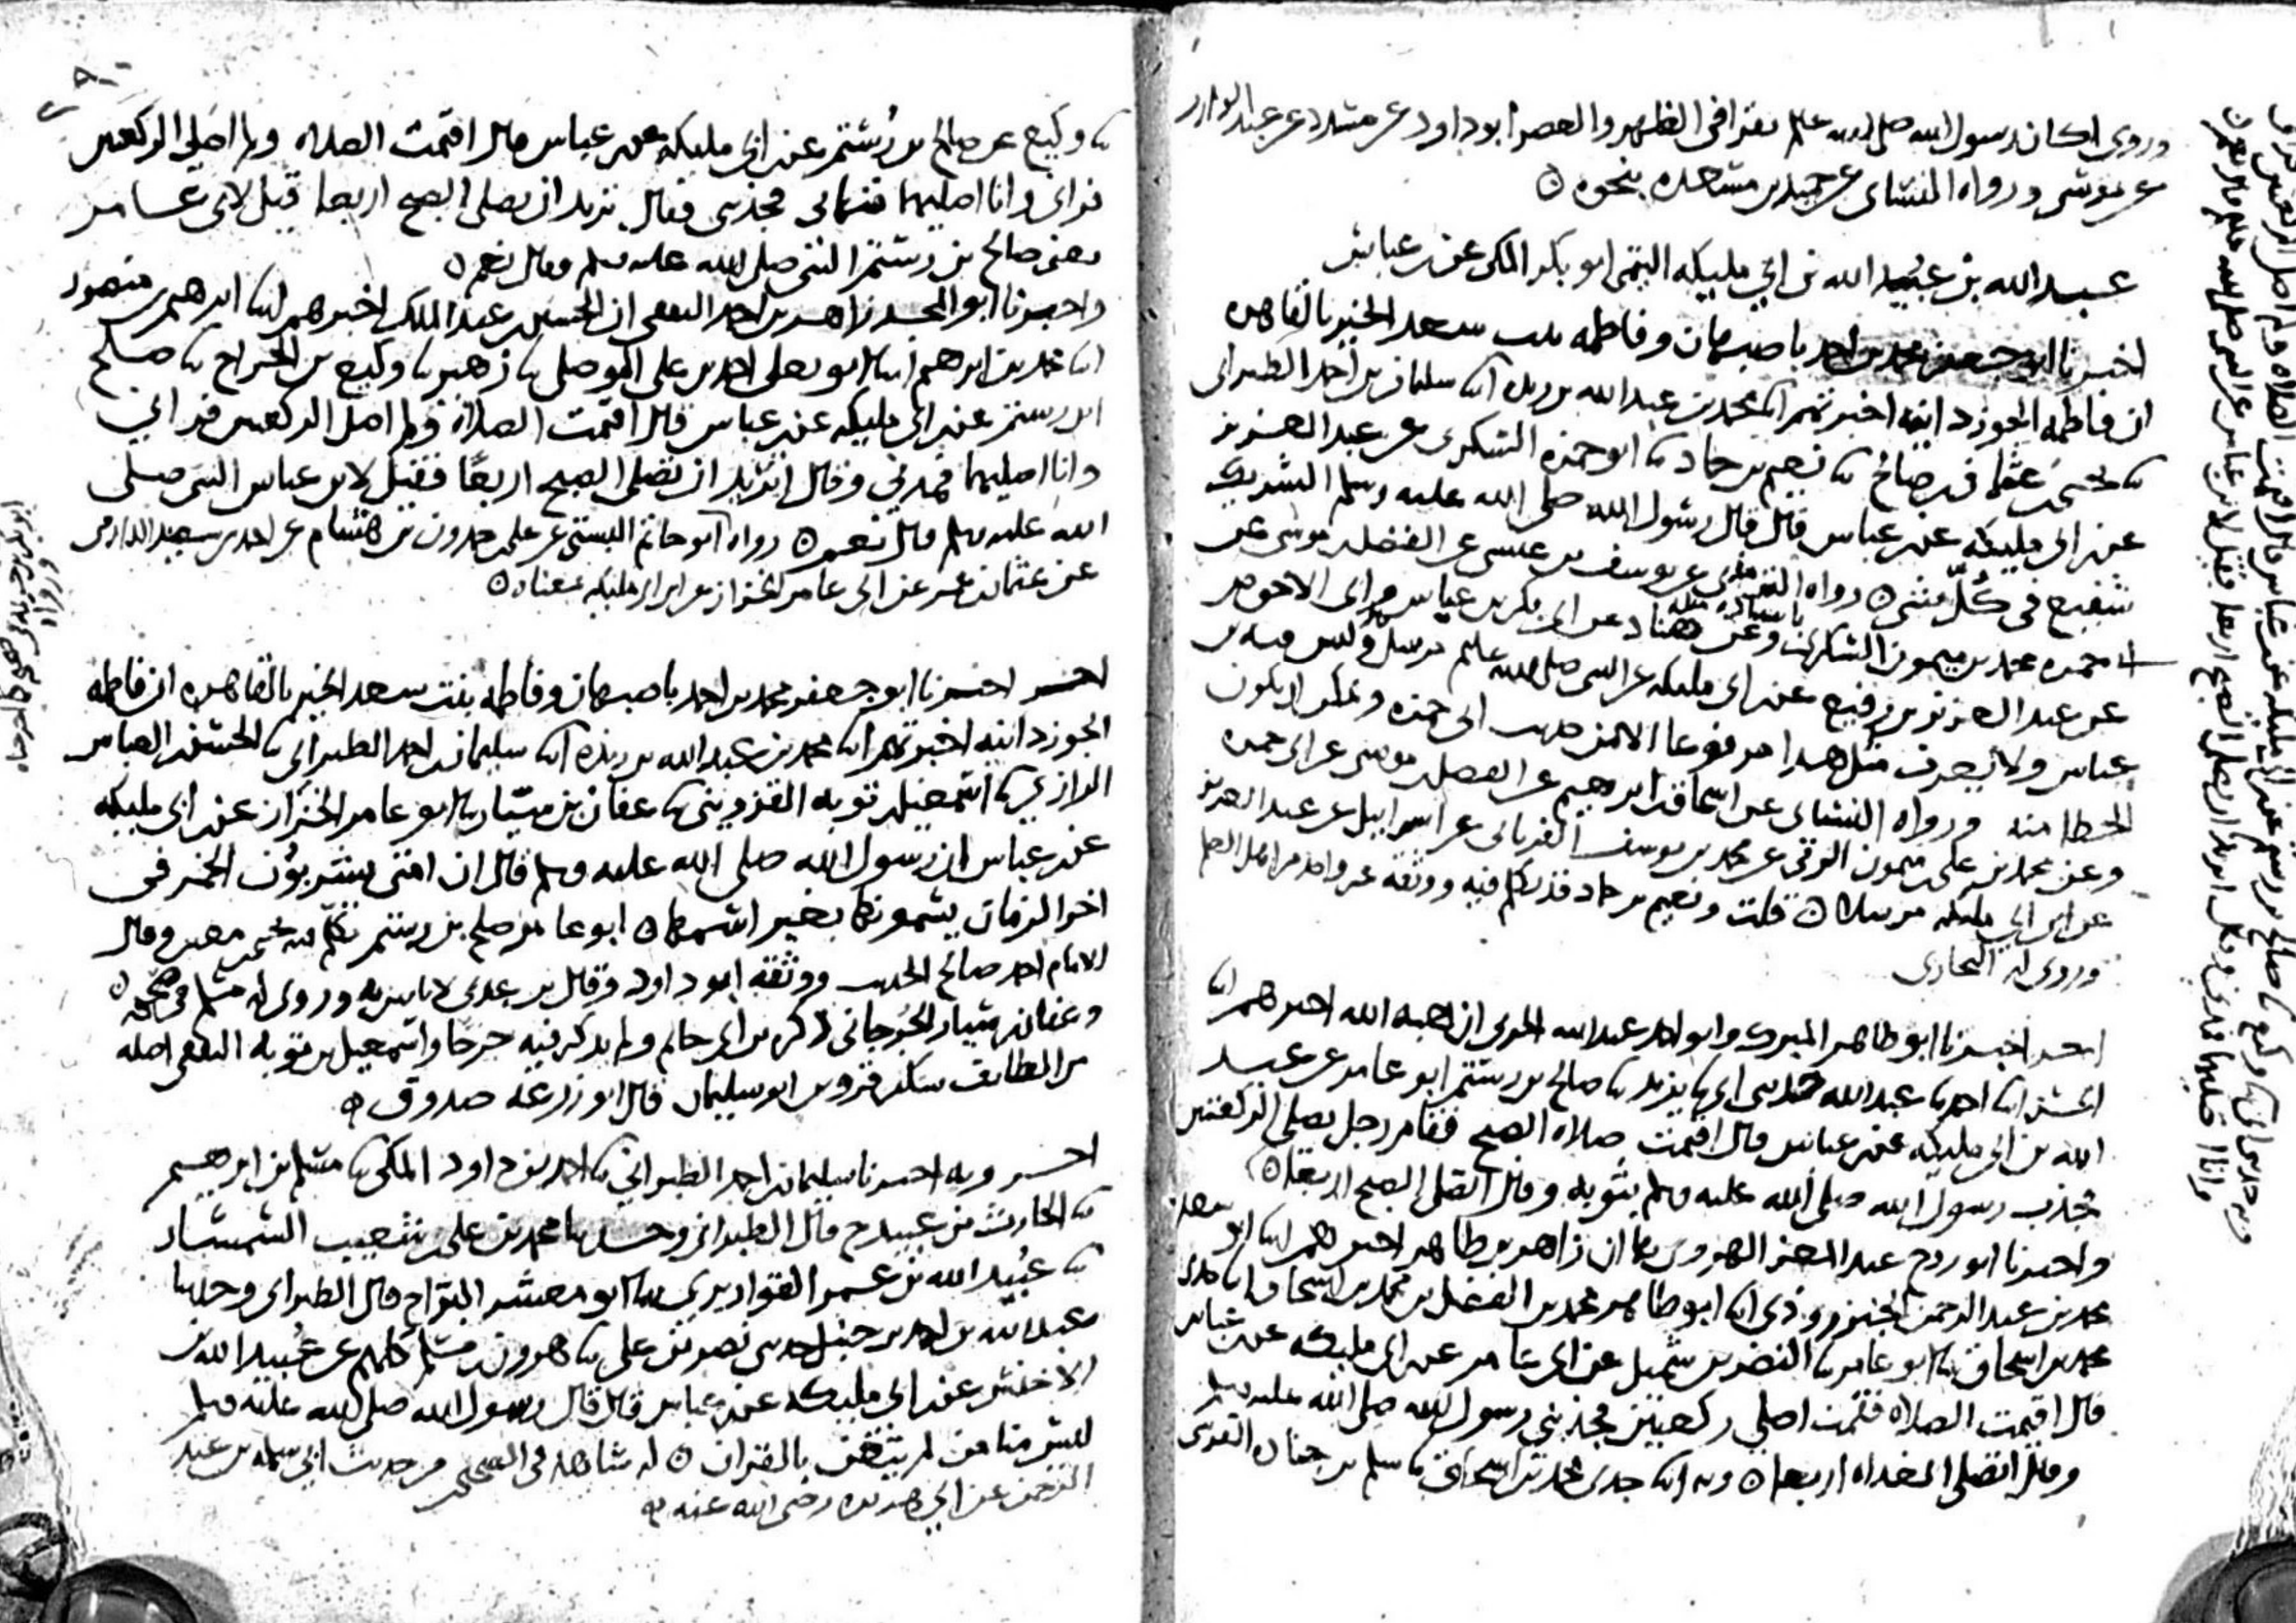 وروى اكان رسول الله صلى الله عليه وسلم يقرا في الظهر والعصر ابو داود عن مسدد عن عبد الوارث
عن موسى ورواه النسائي عن حميد بن مسعده بنحوه
عبيد الله بن عبيد الله بن ابي مليكه التيمي ابو بكر المكي عن ابن عباس
اخبرنا ابو جعفر محمد بن احمد باصبهان وفاطمه بنت سعد الخير بالقاهره
ان فاطمه الجوزدانيه اخبرتهم ابنا محمد بن عبد الله بن ريذه ابنا سليمان بن احمد الطبراني
ثنا يحيى بن عثمان بن صالح ثنا نعيم بن حماد ثنا ابو حمزه السكري عن عبد العزيز
عن ابن ابي مليكه عن ابن عباس قال قال رسول الله صلى الله عليه وسلم الشريك
شفيع في كل شي رواه الترمذي عن يوسف بن عيسى عن الفضل بن موسى عن
ابي حمزه محمد بن ميمون السكري باسناده مثله وعن هناد عن ابي بكر بن عياش وابي الاحوص
عن عبد العزيز بن رفيع عن ابن ابي مليكه عن النبي صلى الله عليه وسلم مرسل وليس فيه ابن
عباس ولا يعرف مثل هذا مرفوعا الا من حديث ابي حمزه ويمكن ان يكون
الخطا منه ورواه النسائي عن اسحاق بن ابرهيم عن الفضل بن موسى عن ابي حمزه
وعن محمد بن علي بن ميمون الرقي عن محمد بن يوسف الفريابي عن اسراييل عن عبد العزيز
عن ابن ابي مليكه مرسلا قلت ونعيم بن حماد قد تكلم فيه ووثقه غير واحد من اهل العلم
وروى له البخاري
اخر اخبرنا ابو طاهر المبارك وابو احمد عبد الله الحربي ان هبه الله اخبرهم ابنا
الحسن ابنا احمد ثنا عبد الله حدثني ابي ثنا يزيد ثنا صالح بن رستم ابو عامر عن عبيد
الله بن ابي مليكه عن ابن عباس قال اقيمت صلاه الصبح فقام رجل يصلي الركعتين
فجذب رسول الله صلى الله عليه وسلم بثوبه وقال اتصلي الصبح اربعا
واخبرنا ابو روح عبد المعز الهروي بها ان زاهر بن طاهر اخبرهم ابنا ابو سعد
محمد بن عبد الرحمن الجنزروذي ابنا ابو طاهر محمد بن الفضل بن محمد بن اسحاق ابنا جدي
محمد بن اسحاق ثنا ابو عامر ثنا النضر بن شميل عن ابي عامر عن ابن ابي مليكه عن ابن عباس
قال اقيمت الصلاه فقمت اصلي ركعتين فجذبني رسول الله صلى الله عليه وسلم
وقال اتصلي الغداه اربعا وبه ابنا جدي محمد بن اسحاق ثنا سلم بن جناده القرشي
ثنا وكيع عن صالح بن رستم عن ابن ابي مليكه عن ابن عباس قال اقيمت الصلاه ولم اصلي الركعتين
فراني وانا اصليهما فنهاني فجذبني وقال تريد ان تصلي الصبح اربعا قيل لابي عامر
يعني صالح بن رستم النبي صلى الله عليه وسلم وقال نعم
واخبرنا ابو المجد زاهر بن احمد الثقفي ان الحسين بن عبد الملك اخبرهم ابنا ابرهيم بن منصور
ابنا محمد بن ابرهيم ابنا ابو يعلى احمد بن علي الموصلي ثنا زهير ثنا وكيع بن الجراح ثنا صلح
ابن رستم عن ابن ابي مليكه عن ابن عباس قال اقيمت الصلاه ولم اصل الركعتين فراني
وانا اصليهما فمدني وقال اتريد ان تصلي الصبح اربعا فقيل لابن عباس النبي صلى
الله عليه وسلم قال نعم رواه ابو حاتم البستي عن علي بن حمدون بن هشام عن احمد بن سعيد الدارمي
عن عثمان بن عمر عن ابي عامر الخزاز عن ابن ابي مليكه بمعناه
اخر اخبرنا ابو جعفر محمد بن احمد باصبهان وفاطمه بنت سعد الخير بالقاهره ان فاطمه
الجوزدانيه اخبرتهم ابنا محمد بن عبد الله بن ريذه ابنا سليمان بن احمد الطبراني ثنا الحسن بن العباس
الرازي ثنا اسمعيل بن توبه القزويني ثنا عفان بن سيار ثنا ابو عامر الخزاز عن ابن ابي مليكه
عن ابن عباس ان رسول الله صلى الله عليه وسلم قال ان امتي يشربون الخمر في
اخر الزمان يسمونها بغير اسمها ابو عامر صلح بن رستم تكلم فيه يحيى بن معين وقال
الامام احمد صالح الحديث ووثقه ابو داود وقال ابن عدي لا باس به وروى له مسلم في صحيحه
وعفان بن سيار الجرجاني ذكره ابن ابي حاتم ولم يذكر فيه جرحا واسمعيل بن توبه الثقفي اصله
من الطايف سكن قزوين ابو سليمان قال ابو زرعه صدوق
اخر وبه اخبرنا سليمان بن احمد الطبراني ثنا احمد بن داود المكي ثنا مسلم بن ابرهيم
ثنا الحارث بن عبيد ح قال الطبراني وحدثنا محمد بن علي بن شعيب السمسار
ثنا عبيد الله بن عمر القواريري ثنا ابو معشر البراء ح قال الطبراني وحدثنا
عبد الله بن احمد بن حنبل حدثني نصر بن علي ثنا هرون بن مسلم كلهم عن عبيد الله بن
الاخنس عن ابن ابي مليكه عن ابن عباس قال قال رسول الله صلى الله عليه وسلم
ليس منا من لم يتغن بالقران له شاهد في الصحيحين من حديث ابي سلمه بن عبد
الرحمن عن ابي هريره رضي الله عنه